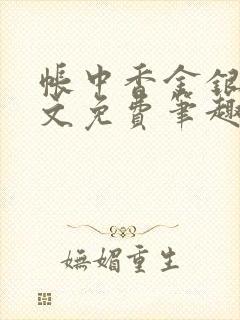 帐中香金银
文免费笔趣
妩媚重生